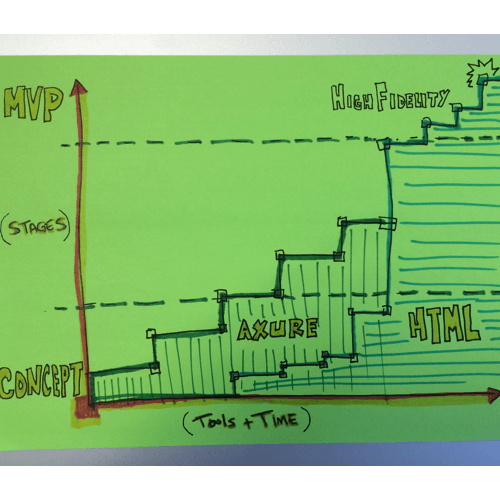 MVP
HIGH FIDELITY
(STAGES)
AXURE
HTML
CONCEPT
(TOOLS + TIME)